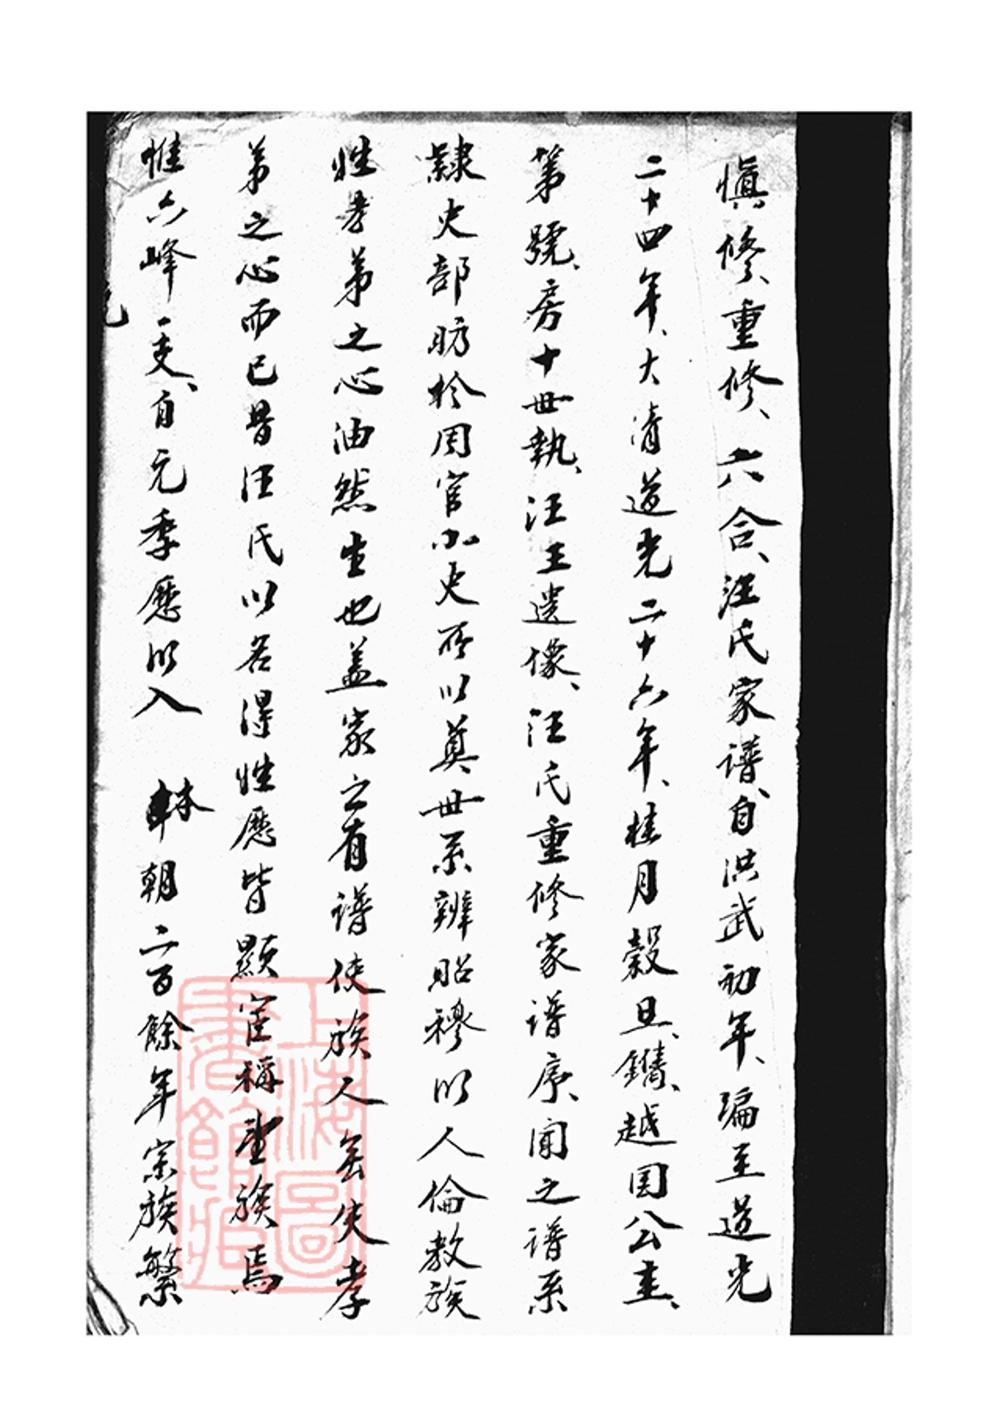 慎修、重修、六合、汪氏家谱、自洪武初年、编至道光
二十四年、大清道光二十六年、桂月榖旦、鐫、越国公圭、
第號、房十世執、汪王遺像、汪氏重修家谱序、闻之谱系
隸史部昉於周官小史所以奠世系辨昭穆以人倫教族
姓孝弟之心油然生也盖家之有谱使族人無失孝
弟之心而已昔汪氏以名得姓歷皆顯宦稱望族焉
惟六峰一支、自元季歷以入 本朝二百餘年宗族繁
上海圖書館藏